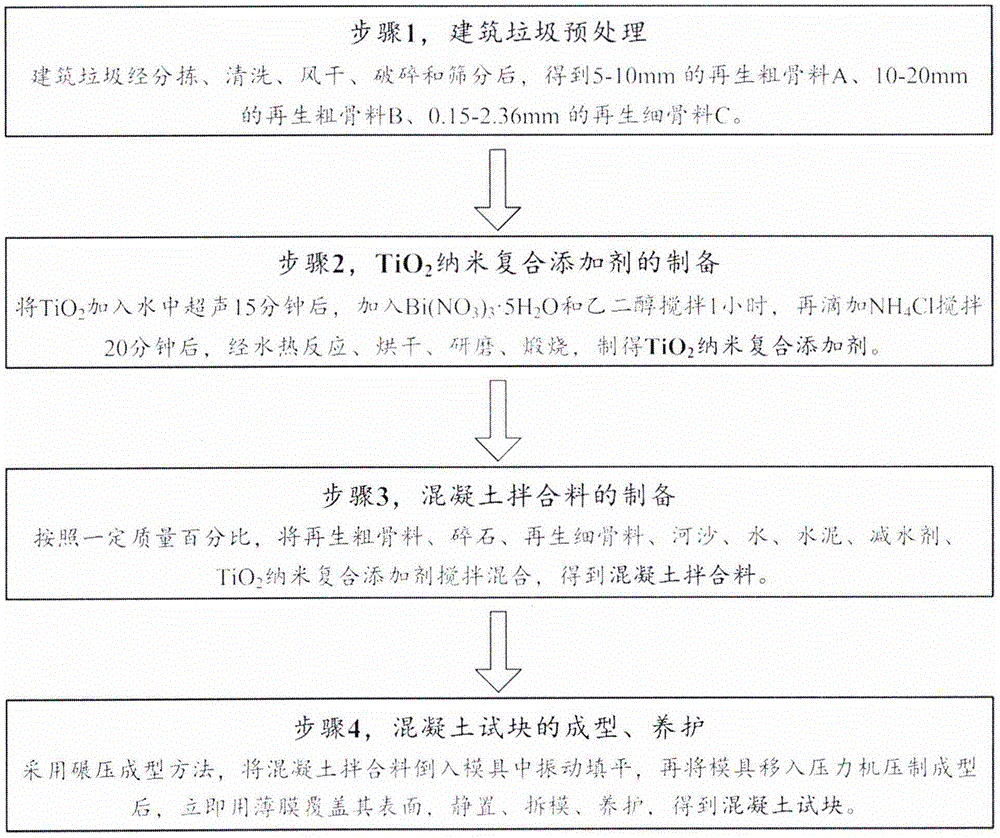 步骤1，建筑垃圾预处理
建筑垃圾经分拣、清洗、风干、破碎和筛分后，得到5-10mm 的再生粗骨料A、10-20mm
的再生粗骨料B、0.15-2.36mm 的再生细骨料C。
步骤2，TiO₂纳米复合添加剂的制备
将TiO₂加入水中超声15分钟后，加入Bi(NO₃)₃·5H₂O和乙二醇搅拌1小时，再滴加NH₄Cl搅拌
20分钟后，经水热反应、烘干、研磨、煅烧，制得TiO₂纳米复合添加剂。
步骤3，混凝土拌合料的制备
按照一定质量百分比，将再生粗骨料、碎石、再生细骨料、河沙、水、水泥、减水剂、
TiO₂纳米复合添加剂搅拌混合，得到混凝土拌合料。
步骤4，混凝土试块的成型、养护
采用碾压成型方法，将混凝土拌合料倒入模具中振动填平，再将模具移入压力机压制成型
后，立即用薄膜覆盖其表面，静置、拆模、养护，得到混凝土试块。